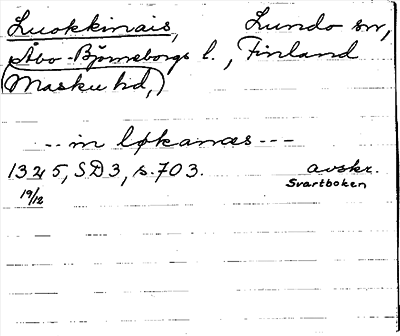 Luokkinais, Lundo sn,
Åbo-Björneborgs l., Finland
(Masku hd,)
-- in løkanæs ---
1325, SD3, s. 703. avskr.
19/12 Svartboken